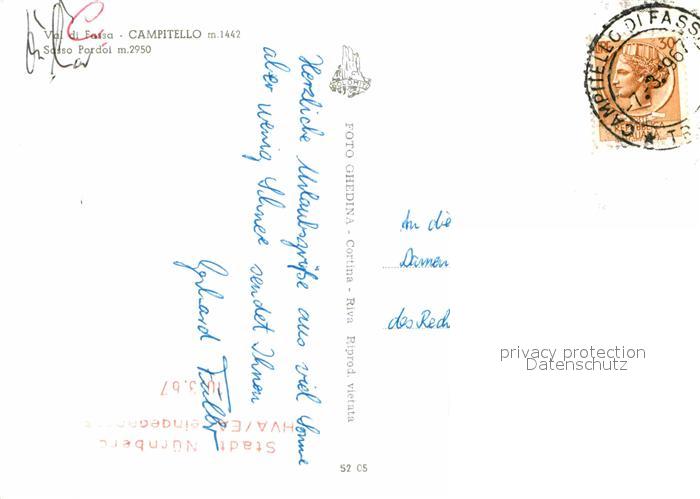 Val di Fassa - CAMPITELLO m.1442
Sasso Pordoi m.2950
Herzliche Urlaubsgrüße aus viel Sonne
aber wenig Schnee sendet Ihnen
Gerhard
FOTO GHEDINA - Cortina - Riva Riprod. vietata
An die
Damen
des Rech
CAMPITELLO DI FASSA
TR
30
-7.3.1967
privacy protection
Datenschutz
Stadt Nürnberg
HVA/ eingegangen
10.3.67
52 05